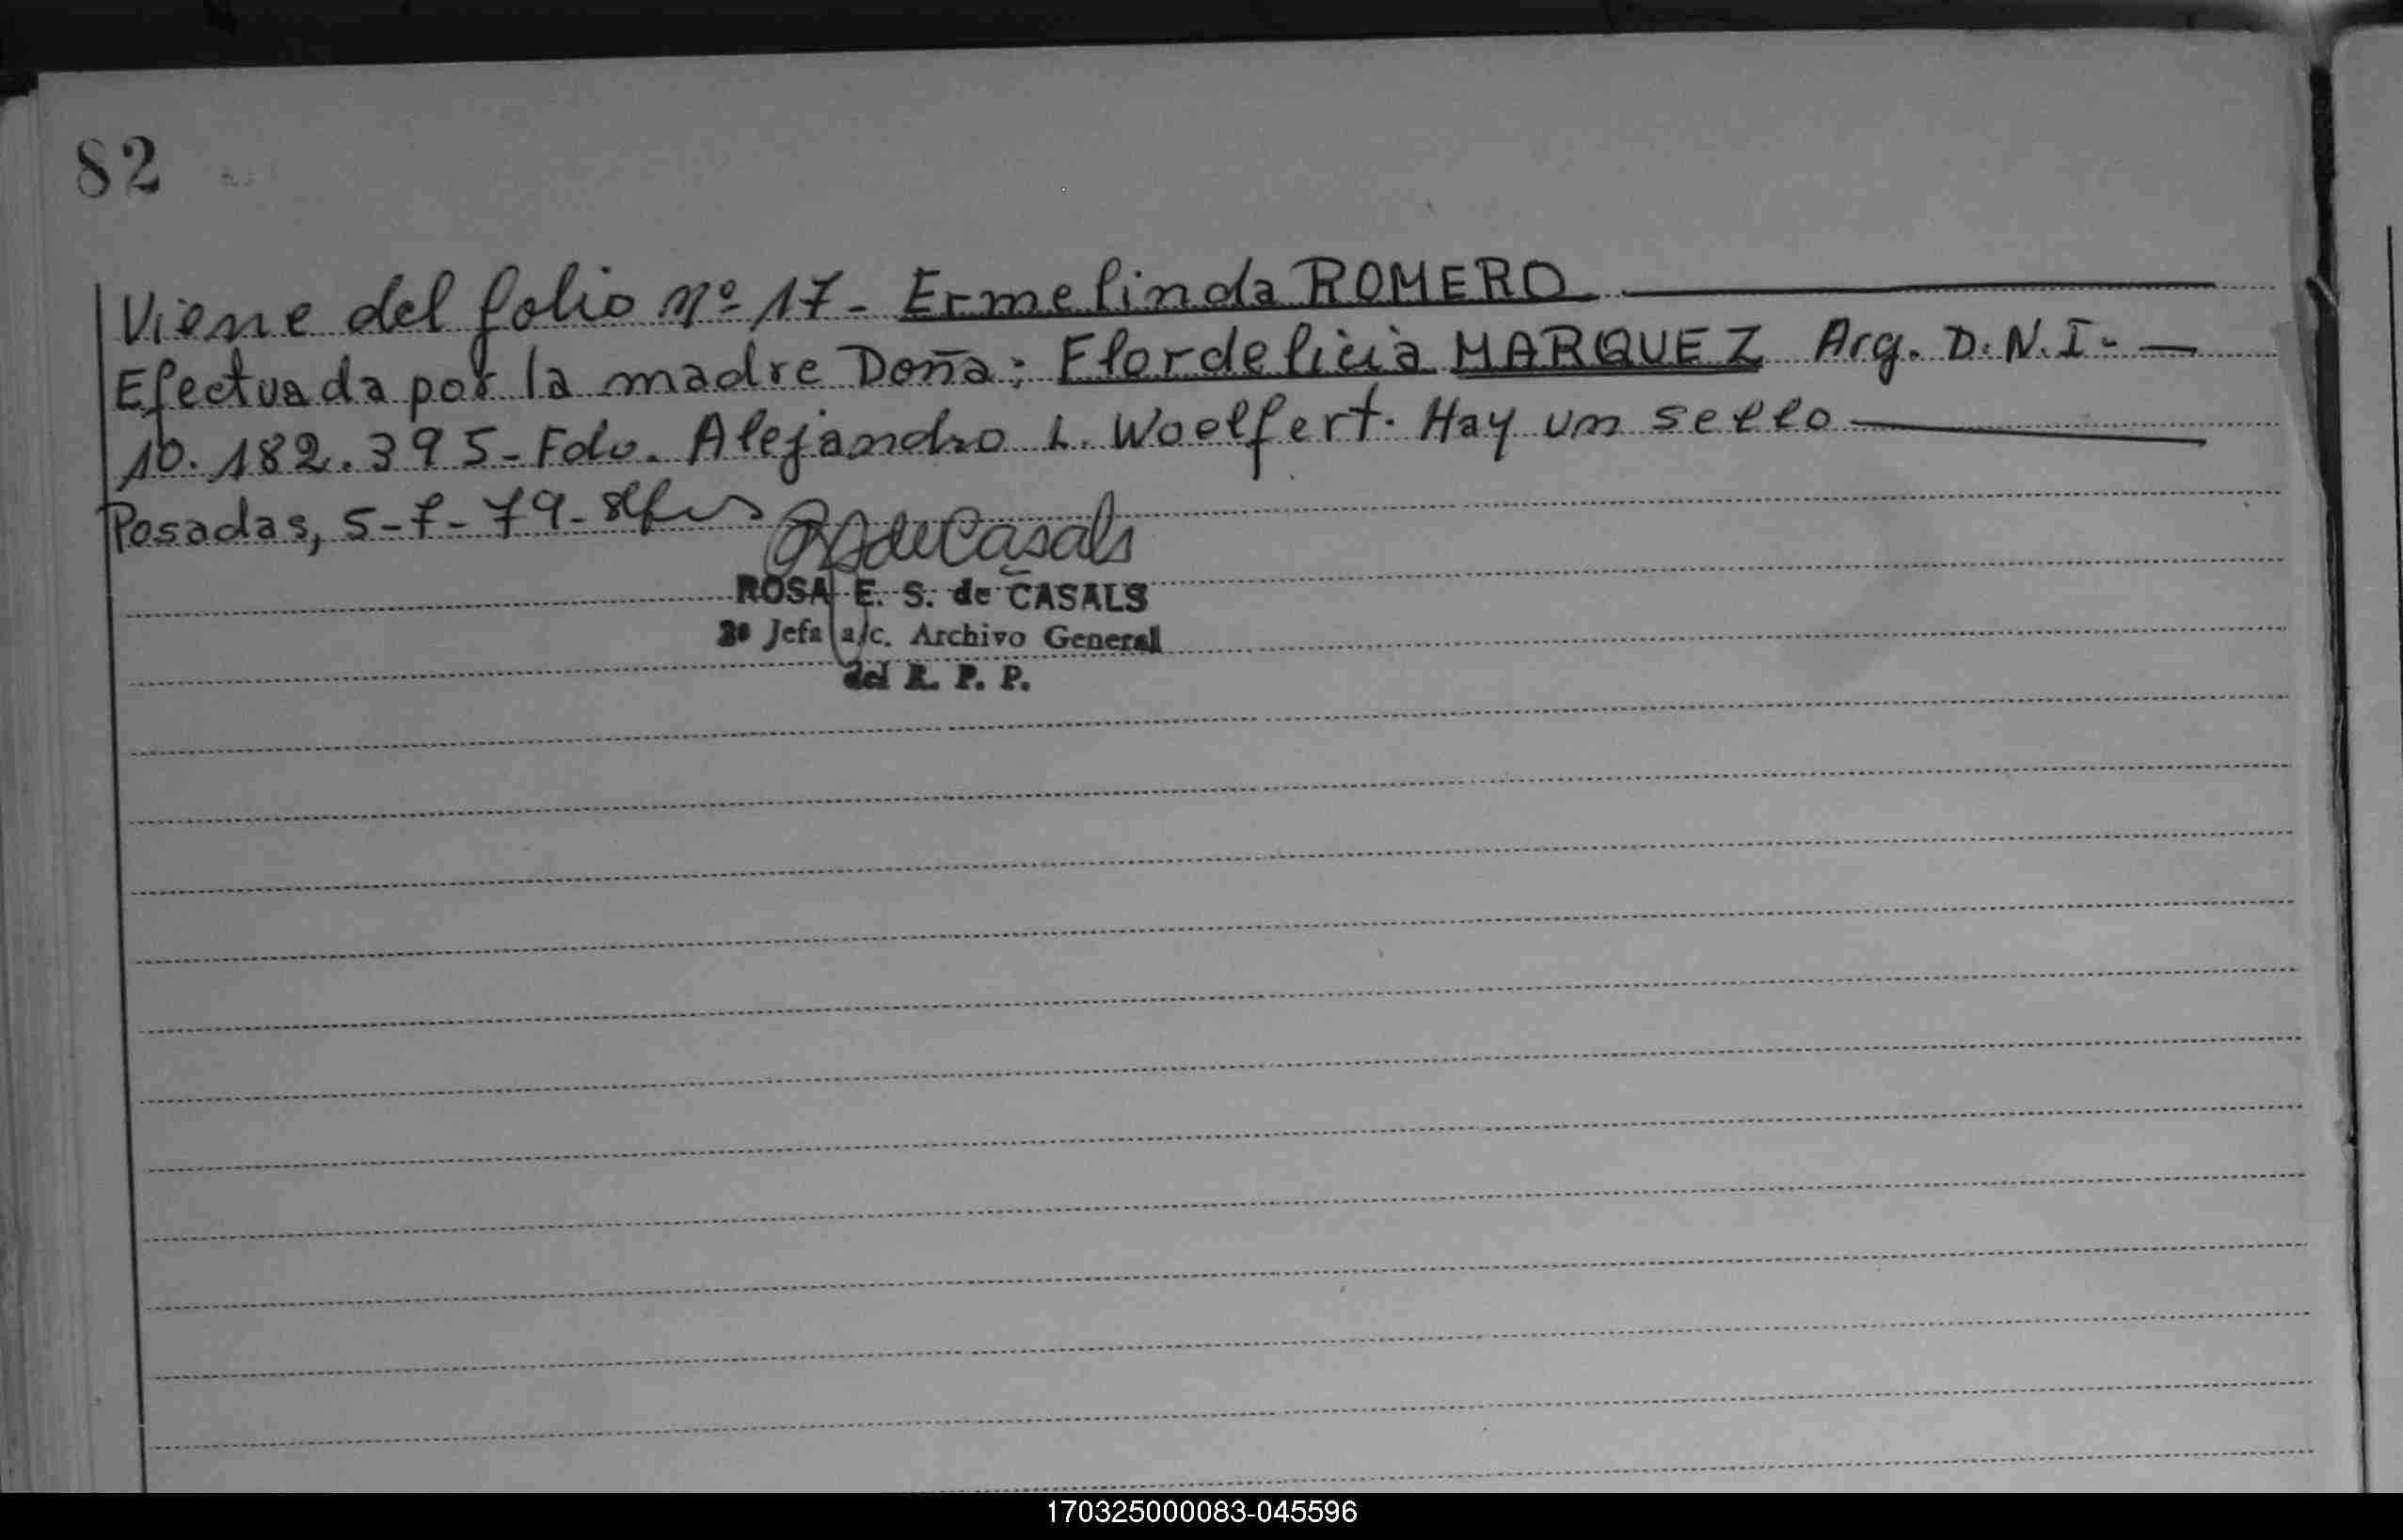 82
Viene del folio Nº 17- Ermelinda ROMERO
Efectuada por la madre Doña: Flordelicia MARQUEZ Arg. D.N.I.-
10.182.395- Fdo. Alejandro L. Woelfert. Hay un sello
Posadas, 5-7-79-
de Casals
ROSA E. S. de CASALS
2º Jefa a/c. Archivo General
del R. P. P.
170325000083-045596